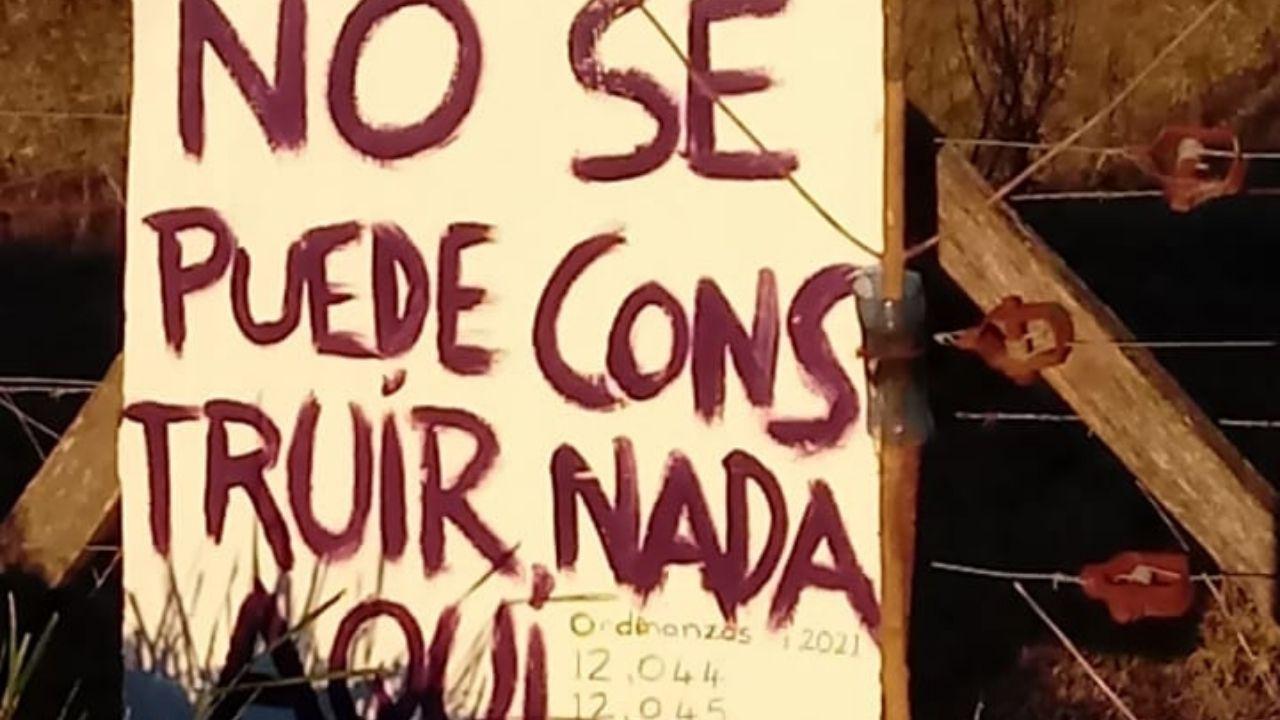 NO SE
PUEDE CONS
TRUIR NADA
AQUÍ
Ordenanzas, 2021
12.044
12.045